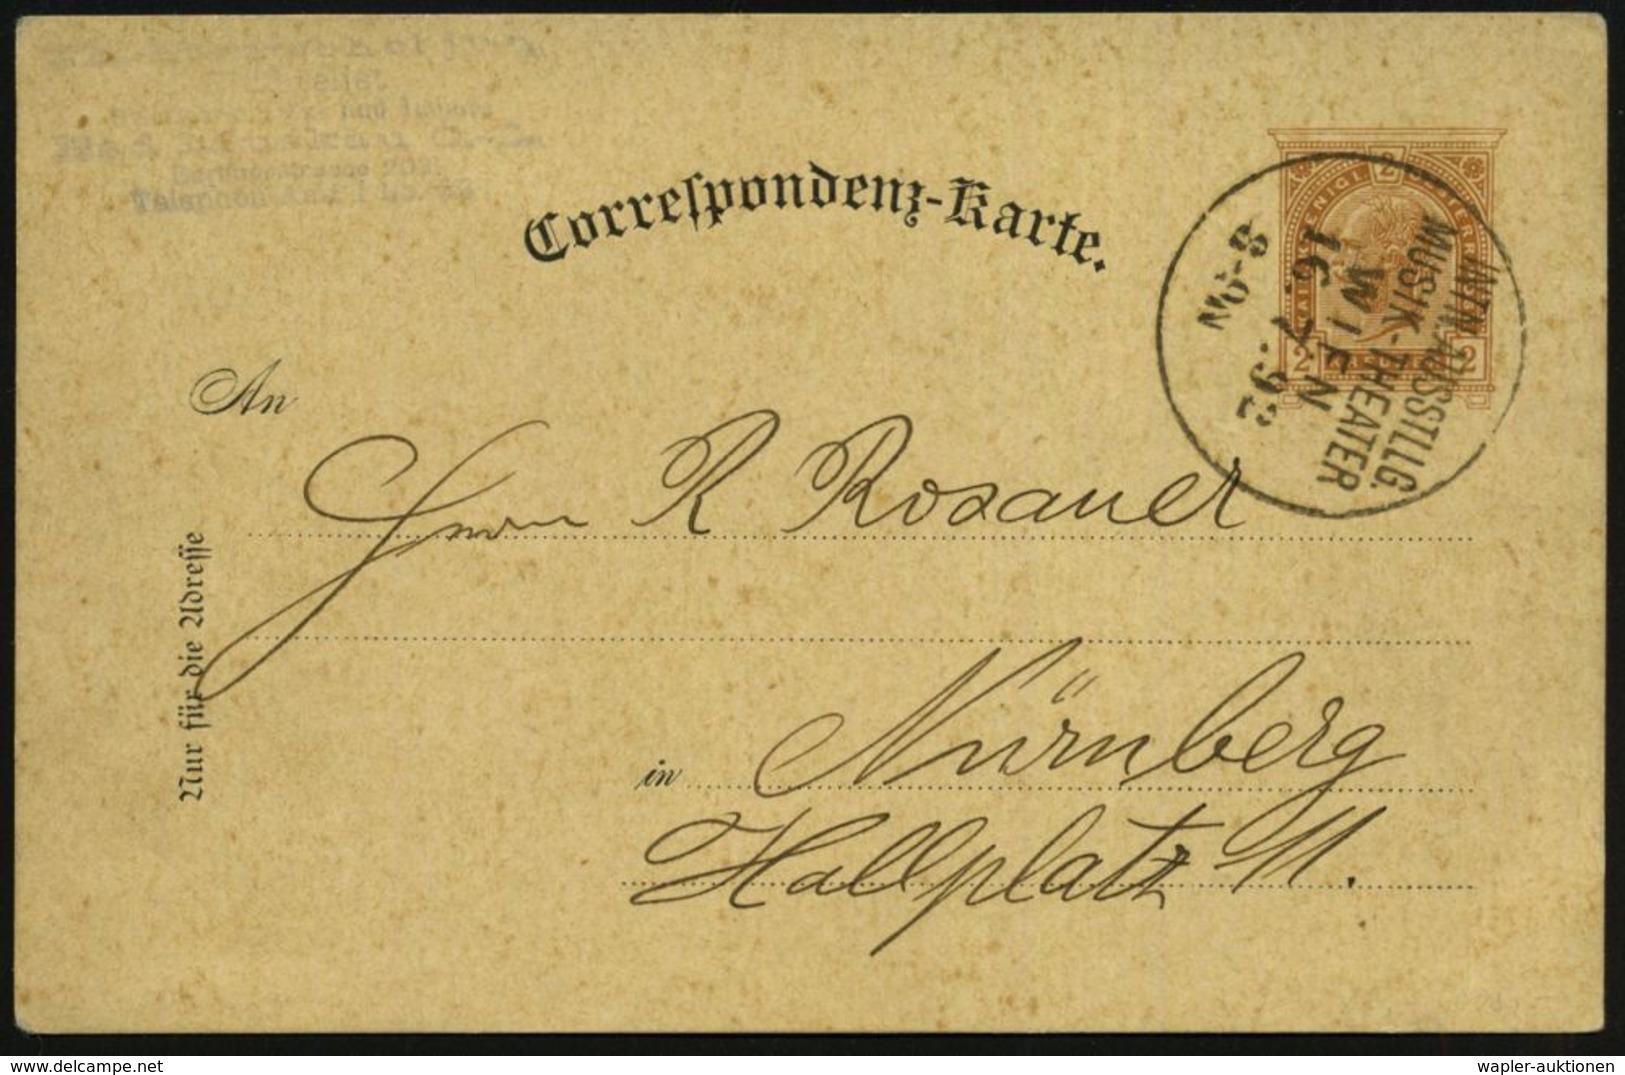 und
Telephon
Correspondenz-Karte.
KAIS. KÖNIGL. 2 ÖSTERR.
2 2
INTN. AUSSTLLG.
MUSIK-THEATER
WIEN
16. 7. 92
8-9N
An
Herrn R Rosauer
Nur für die Adresse
in Nürnberg
Hallplatz 11.
www.delcampe.net
wapler-auktionen